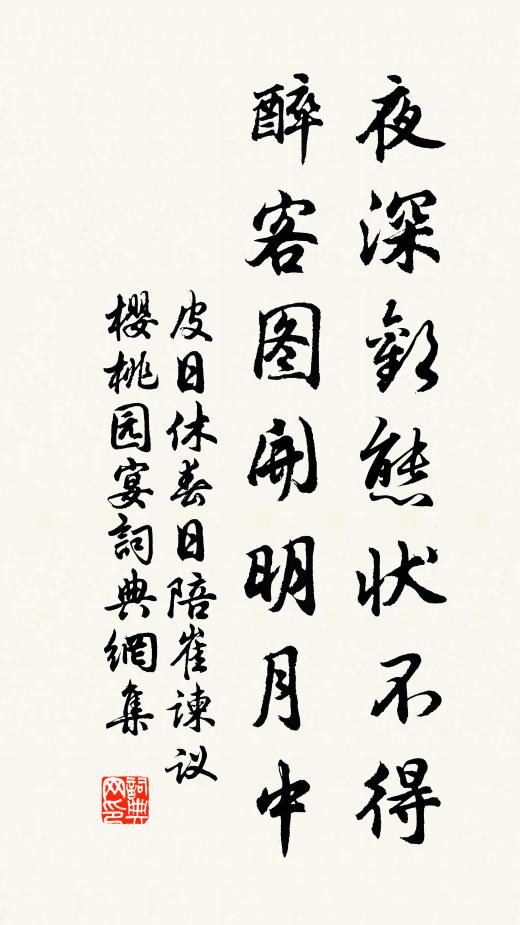 夜深歡態状不得
醉客图開明月中
皮日休春日陪崔諫议
櫻桃园宴詞典網集
詞典網印